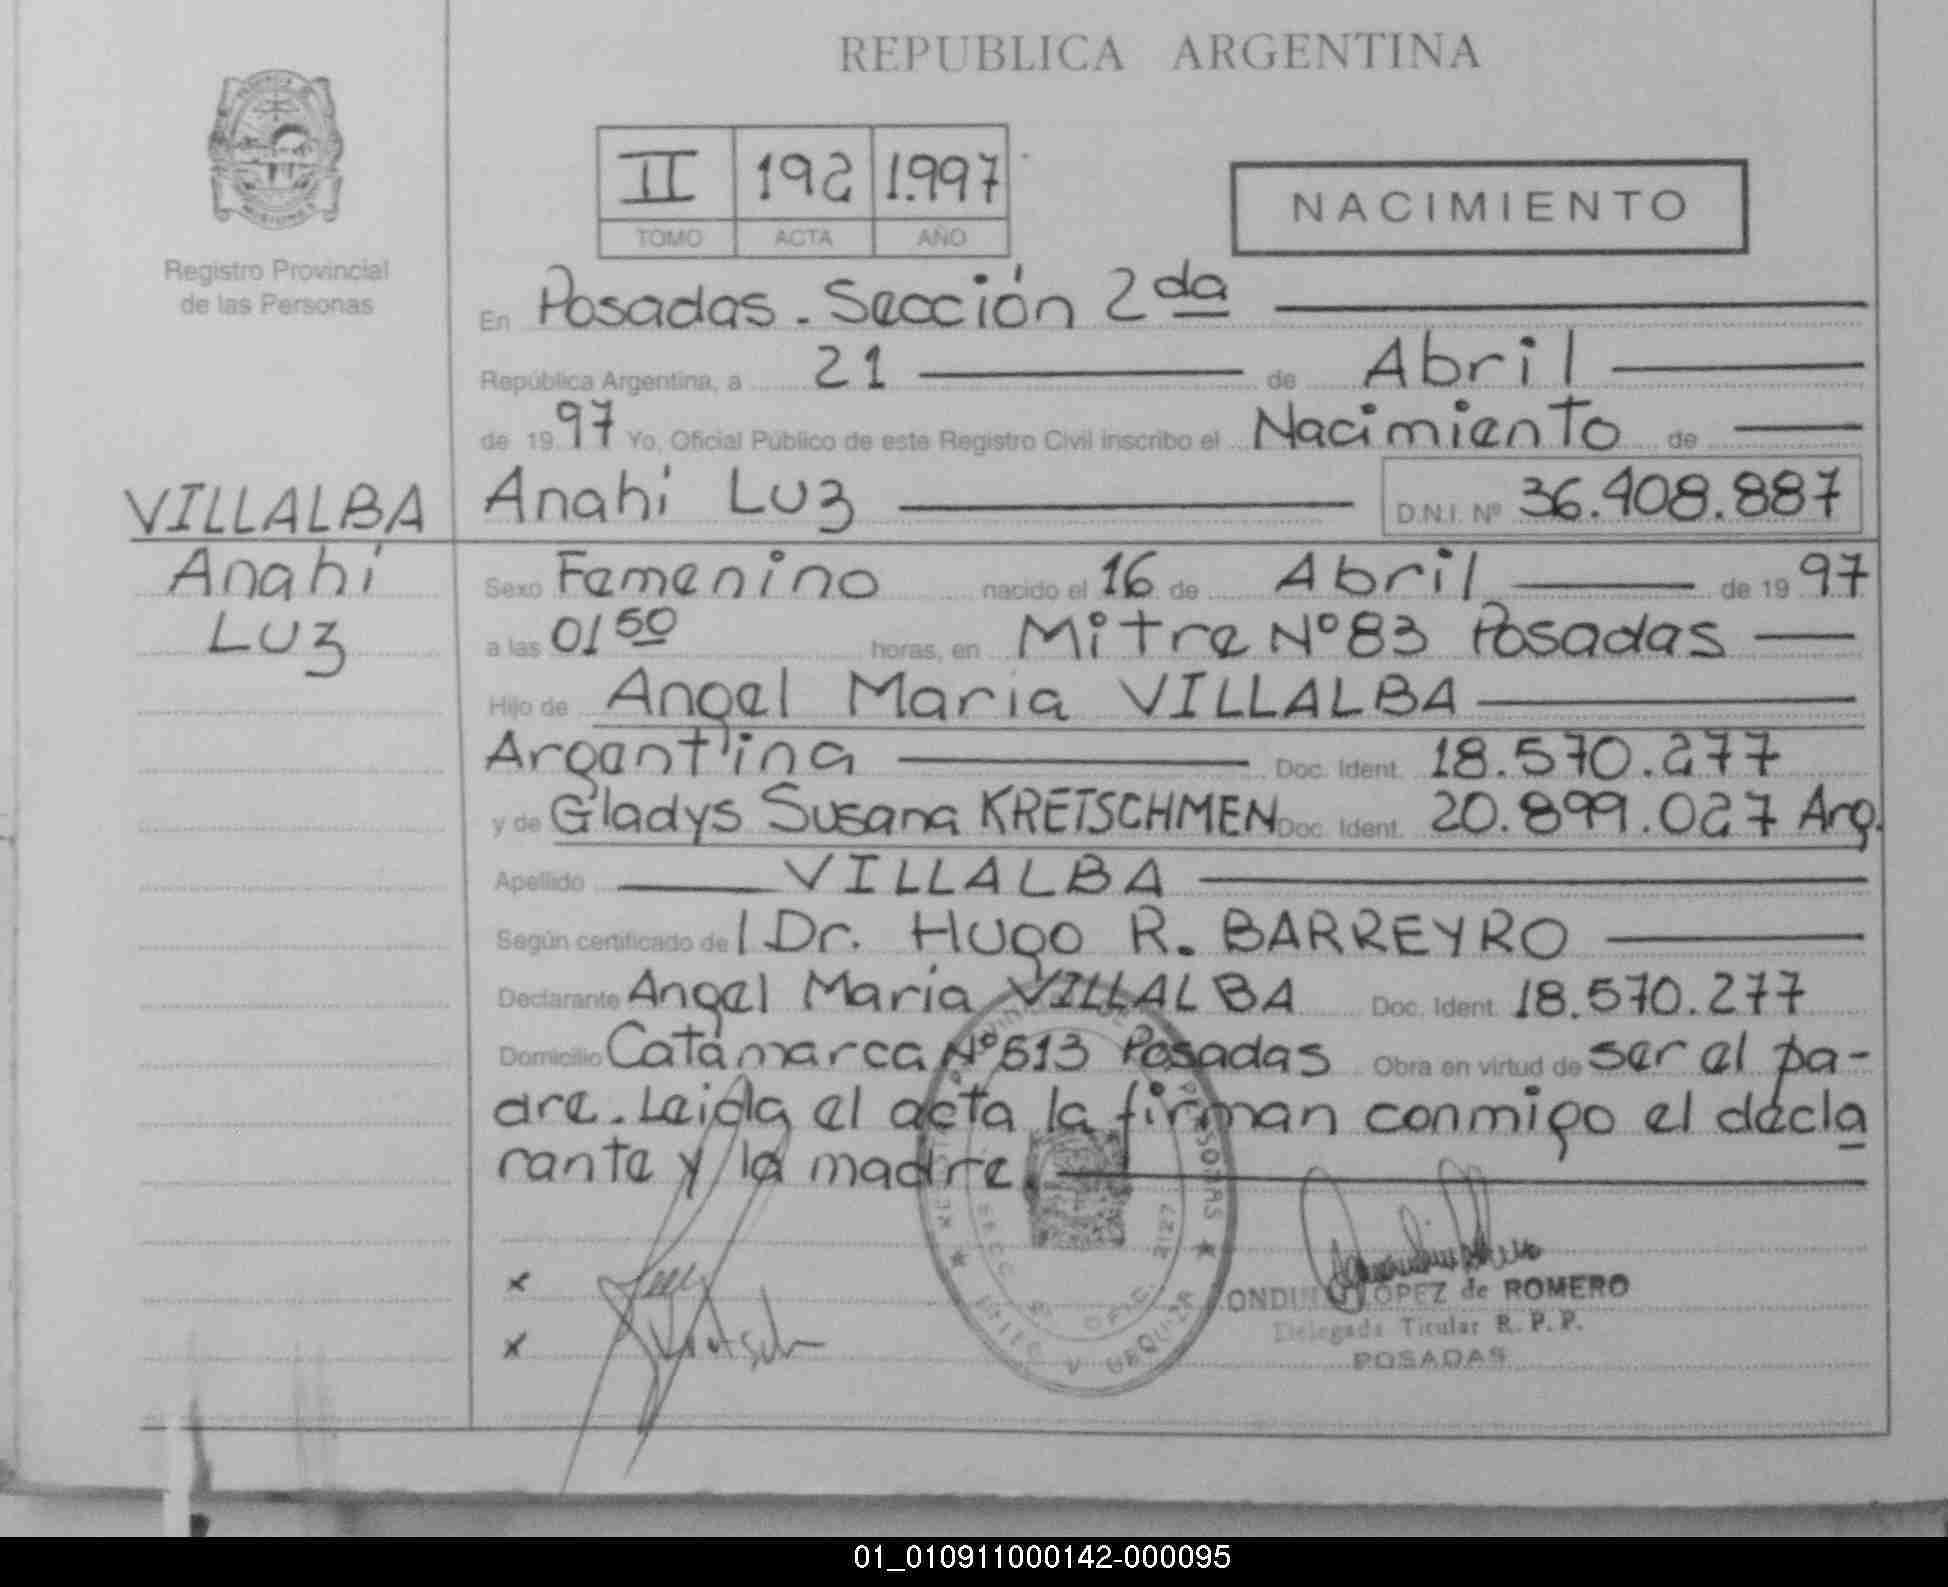 REPUBLICA ARGENTINA
II 192 1.997
TOMO ACTA AÑO
NACIMIENTO
Registro Provincial
de las Personas
En Posadas. Sección 2da
República Argentina, a 21 de Abril
de 19 97 Yo, Oficial Público de este Registro Civil inscribo el Nacimiento de
VILLALBA
Anahí
Luz
Anahi Luz D.N.I. Nº 36.408.887
Sexo Femenino nacido el 16 de Abril de 19 97
a las 01 50 horas, en Mitre Nº 83 Posadas
Hijo de Angel Maria VILLALBA
Argentina Doc. Ident. 18.570.277
y de Gladys Susana KRETSCHMEN Doc. Ident. 20.899.027 Arg.
Apellido VILLALBA
Según certificado de l Dr. Hugo R. BARREYRO
Declarante Angel María VILLALBA Doc. Ident. 18.570.277
Domicilio Catamarca Nº 513 Posadas Obra en virtud de ser el pa-
dre. Leida el acta la firman conmigo el decla
rante y la madre.
x
x
LOPEZ de ROMERO
Delegada Titular R.P.P.
POSADAS
01_010911000142-000095